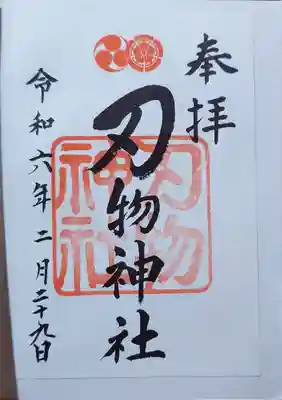 奉拝
刃物神社
刃物
神社
令和六年二月二十九日